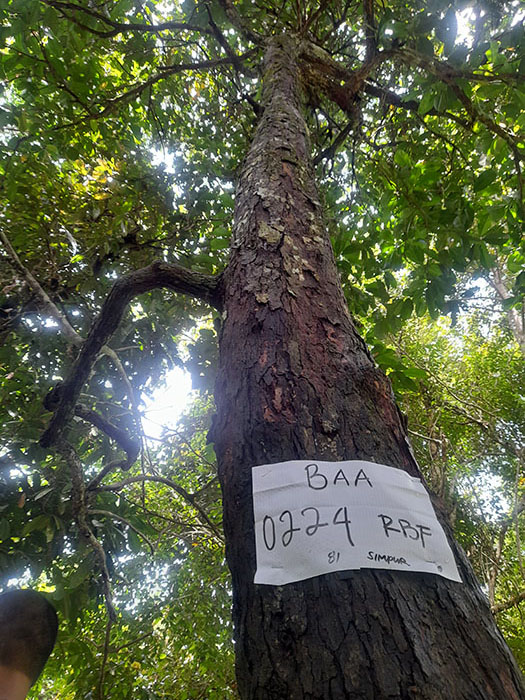 BAA
0224 RBF
81 SIMPUR